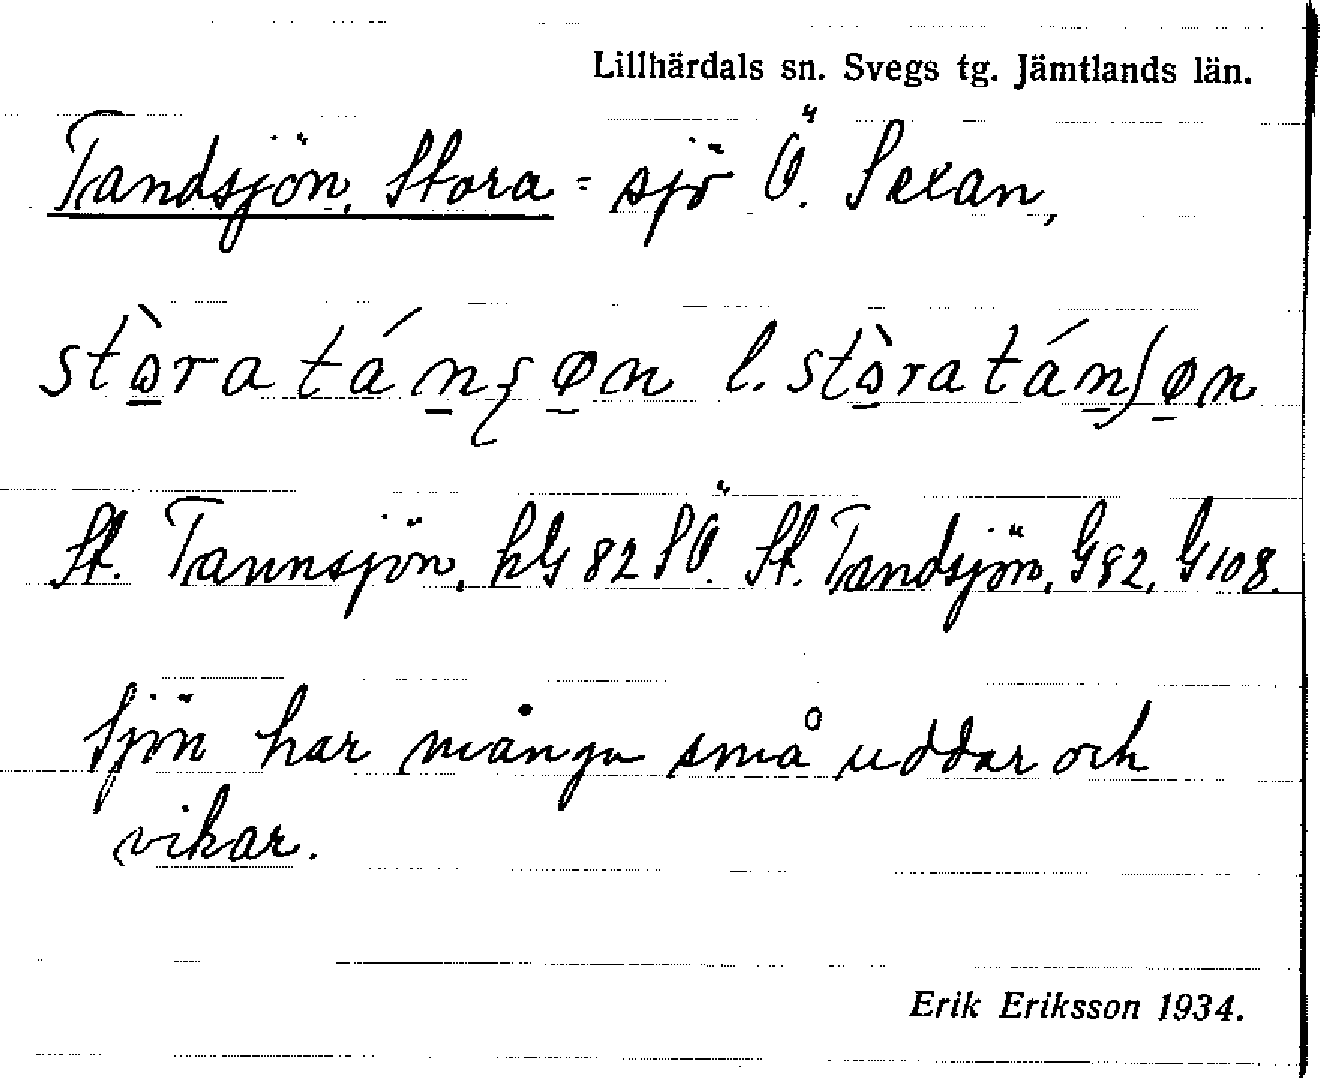 Lillhärdals sn. Svegs tg. Jämtlands län.
Tandsjön, Stora = sjö Ö. Sexan,
stòra tánʃøn l. stòra tánʃøn
St. Tannsjön, hG 82 SÖ. St. Tandsjön, G 82, G 108.
Sjön har många små uddar och
vikar.
Erik Eriksson 1934.